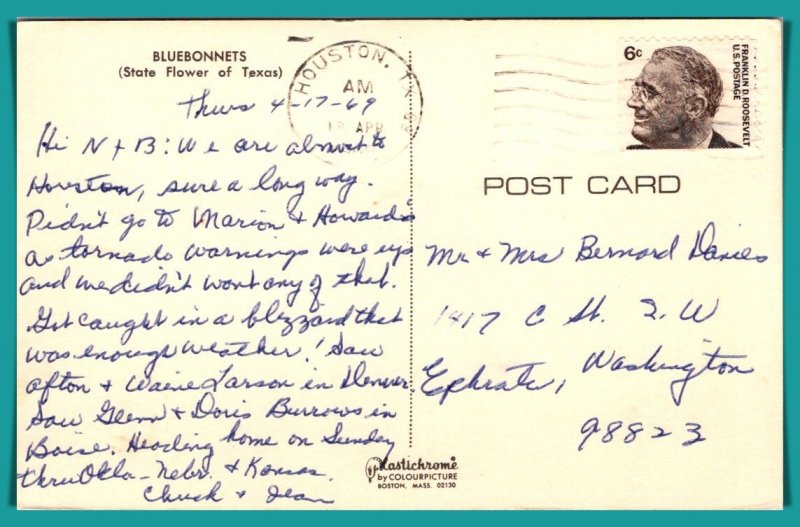 BLUEBONNETS
(State Flower of Texas)
Thurs 4-17-69
Hi N + B: We are almost to
Houston, sure a long way.
Didn't go to Marion & Howard's
as tornado warnings were up
and we didn't want any of that.
Got caught in a blizzard that
was enough weather! Saw
Afton & Larson in Denver.
Saw Glenn & Doris Burrows in
Boise. Heading home on Sunday
thru Okla - Nebr. & Kansas.
Chuck & Jean
HOUSTON, TX
AM
18 APR
69
6c
FRANKLIN D. ROOSEVELT
U.S. POSTAGE
POST CARD
Mr. & Mrs Bernard Davies
1417 C St. S.W
Ephrata, Washington
98823
Plastichrome
by COLOURPICTURE
BOSTON, MASS. 02130